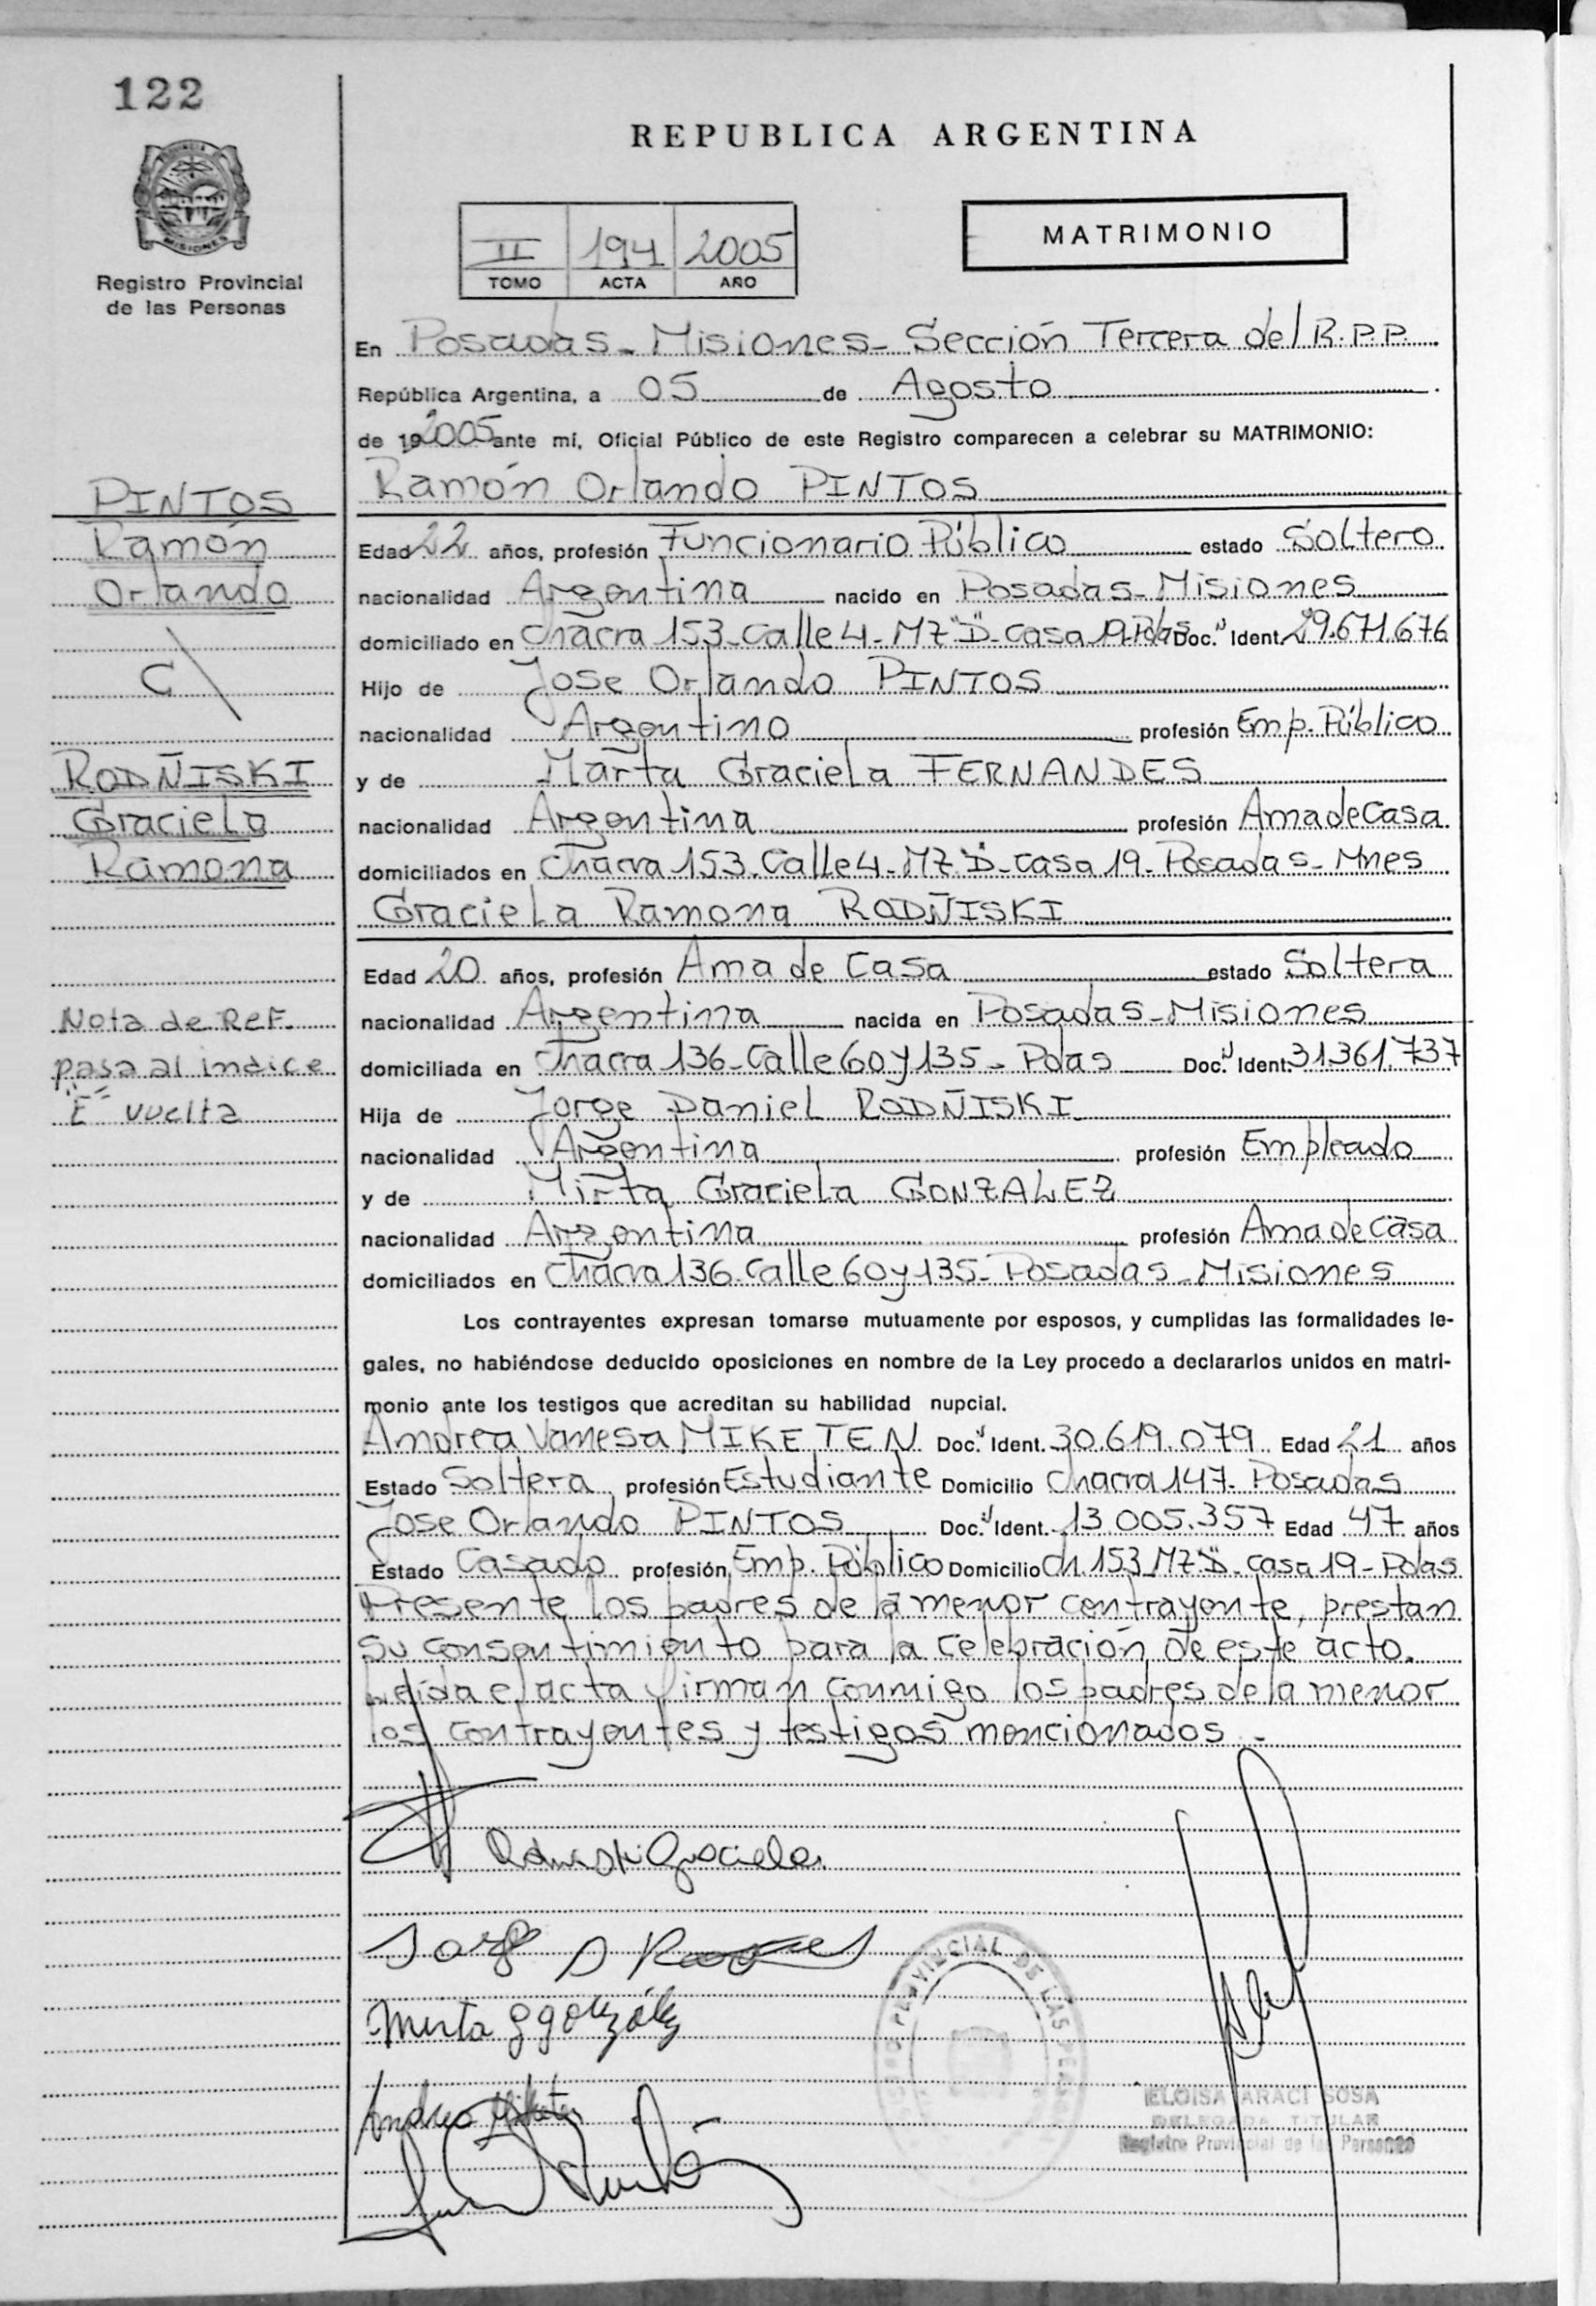 122
REPUBLICA ARGENTINA
PROVINCIA
MISIONES
Registro Provincial
de las Personas
II 194 2005
TOMO ACTA AÑO
MATRIMONIO
En Posadas - Misiones - Sección Tercera del R.P.P.
República Argentina, a 05 de Agosto
de 192005 ante mí, Oficial Público de este Registro comparecen a celebrar su MATRIMONIO:
Ramón Orlando PINTOS
Edad 22 años, profesión Funcionario Público estado Soltero
nacionalidad Argentina nacido en Posadas - Misiones
domiciliado en Chacra 153 - Calle 4 - MZ "D" - Casa 19 - Pdas Doc. Ident. 29.671.676
Hijo de Jose Orlando PINTOS
nacionalidad Argentino profesión Emp. Público
y de Marta Graciela FERNANDES
nacionalidad Argentina profesión Ama de Casa
domiciliados en Chacra 153 - Calle 4 - MZ "D" - Casa 19 - Posadas - Mnes
Graciela Ramona RODÑISKI
Edad 20 años, profesión Ama de Casa estado Soltera
nacionalidad Argentina nacida en Posadas - Misiones
domiciliada en Chacra 136 - Calle 60 y 135 - Pdas Doc. Ident. 31.361.737
Hija de Jorge Daniel RODÑISKI
nacionalidad Argentina profesión Empleado
y de Mirta Graciela GONZALEZ
nacionalidad Argentina profesión Ama de Casa
domiciliados en Chacra 136 - Calle 60 y 135 - Posadas - Misiones
Los contrayentes expresan tomarse mutuamente por esposos, y cumplidas las formalidades le-
gales, no habiéndose deducido oposiciones en nombre de la Ley procedo a declararlos unidos en matri-
monio ante los testigos que acreditan su habilidad nupcial.
Andrea Vanesa MIKETEN Doc. Ident. 30.619.079 Edad 21 años
Estado Soltera profesión Estudiante Domicilio Chacra 147 - Posadas
Jose Orlando PINTOS Doc. Ident. 13.005.357 Edad 47 años
Estado Casado profesión Emp. Público Domicilio Ch. 153 MZ "D" - Casa 19 - Pdas
Presente los padres de la menor contrayente, prestan
su consentimiento para la celebración de este acto.
Leída el acta firman conmigo los padres de la menor
los contrayentes y testigos mencionados -
PINTOS
Ramón
Orlando
C/
RODÑISKI
Graciela
Ramona
Nota de Ref.
pasa al indice
E" vuelta
Graciela
Jorge D
Mirta G González
Andrea Miketen
PROVINCIAL DE LAS PERSONAS
ELOISA ARACI SOSA
DELEGADA TITULAR
Registro Provincial de las Personas